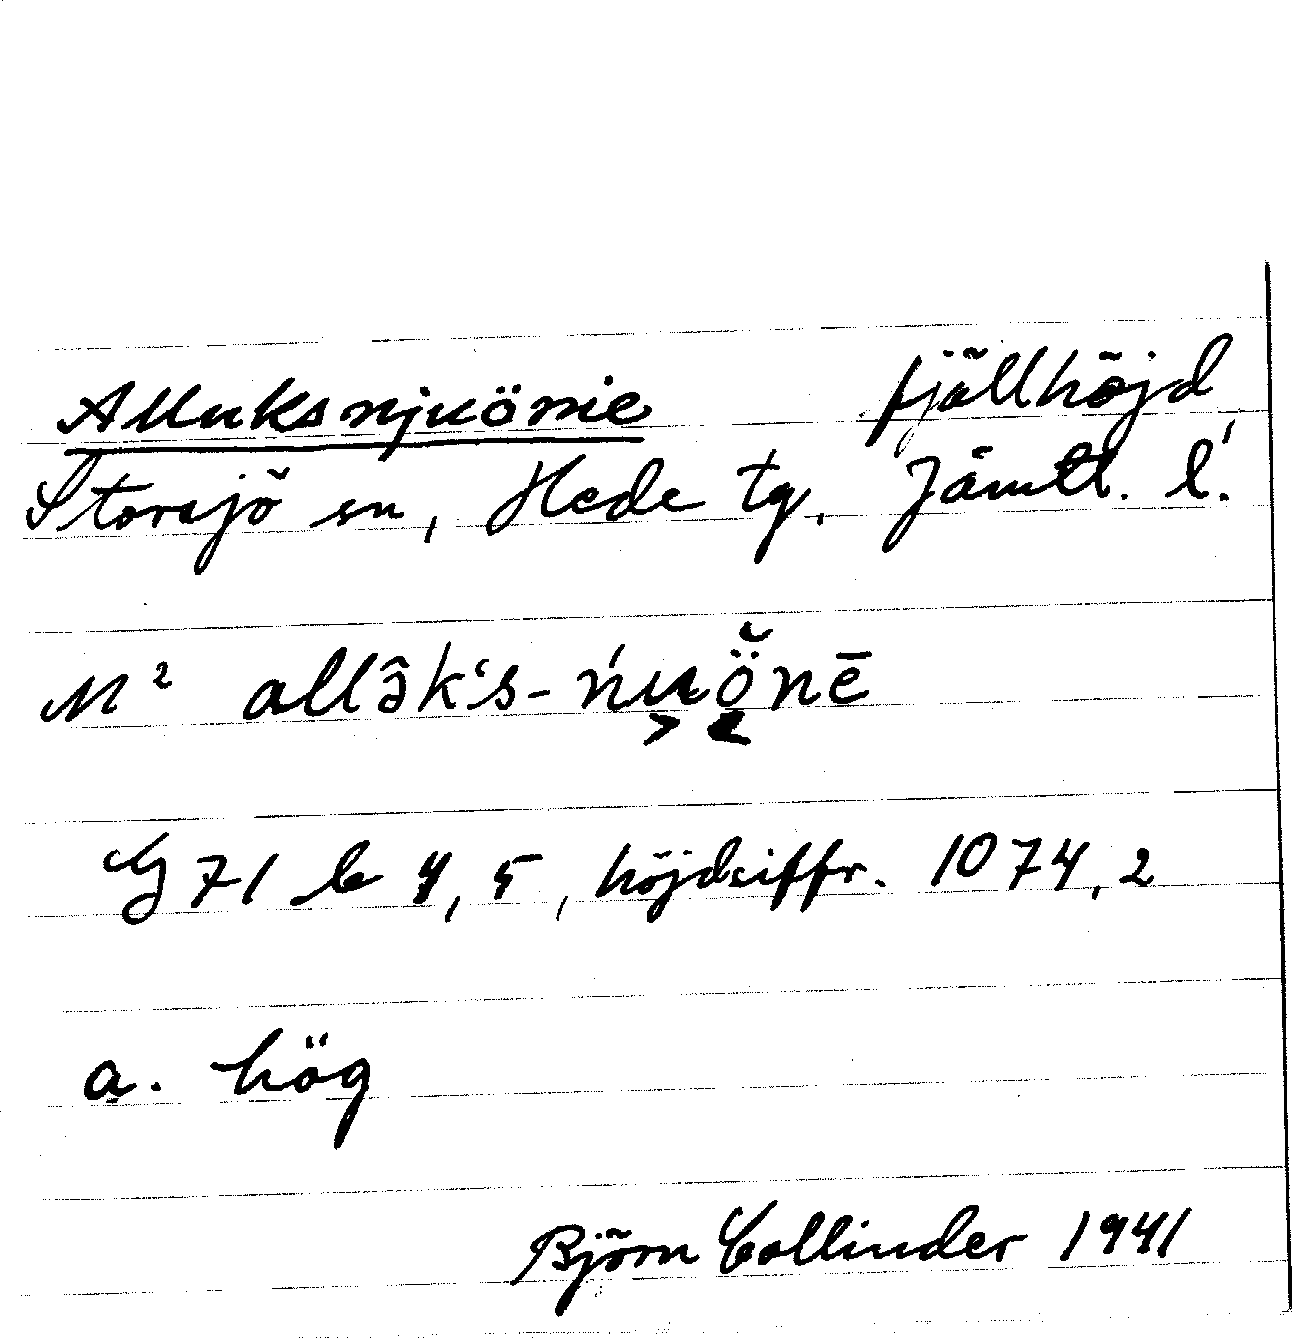 Alluksnjuönie fjällhöjd
Storsjö sn, Hede tg, Jämtl. l.
M² allə̂k‘s-ńuö̆nē
G 71 b 4, 5, höjdsiffr. 1074,2
a. hög
Björn Collinder 1941